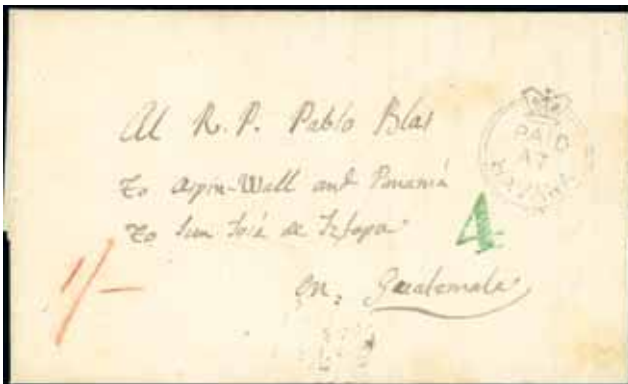 Al R. P. Pablo Blas
To Aspin-Wall and Panamá
To San José de Iztapa
en, Guatemala
PAID
AT
HAVANA
4
1/-